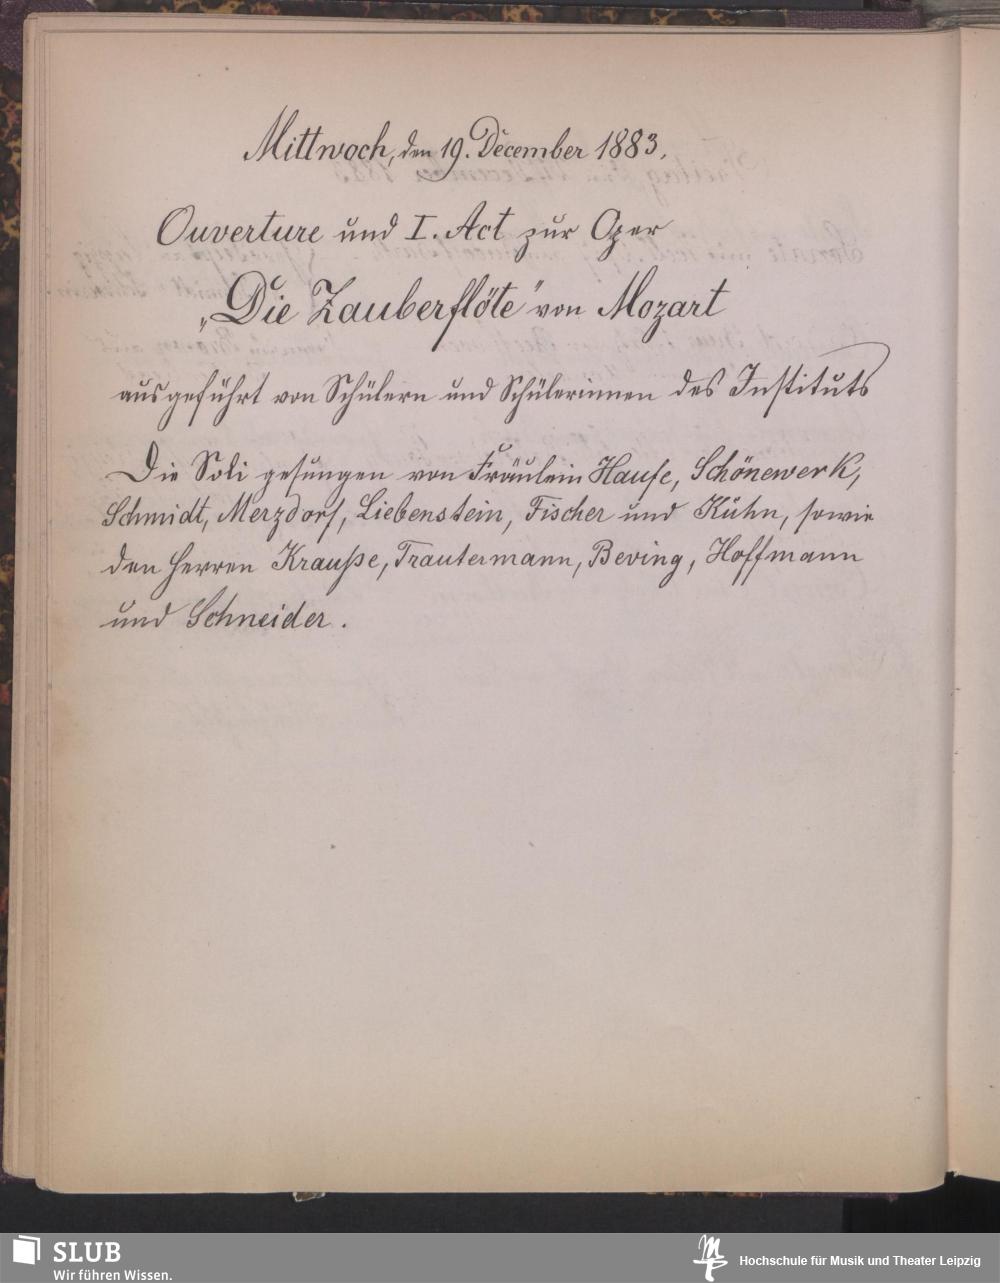 Mittwoch, den 19. December 1883.
Ouverture und I. Act zur Oper
„Die Zauberflöte" von Mozart
ausgeführt von Schülern und Schülerinnen des Instituts
Die Soli gesungen von Fräulein Haufe, Schönewerk,
Schmidt, Merzdorf, Liebenstein, Fischer und Kühn, sowie
den Herren Krauße, Trautermann, Beving, Hoffmann
und Schneider.
SLUB
Wir führen Wissen.
Hochschule für Musik und Theater Leipzig